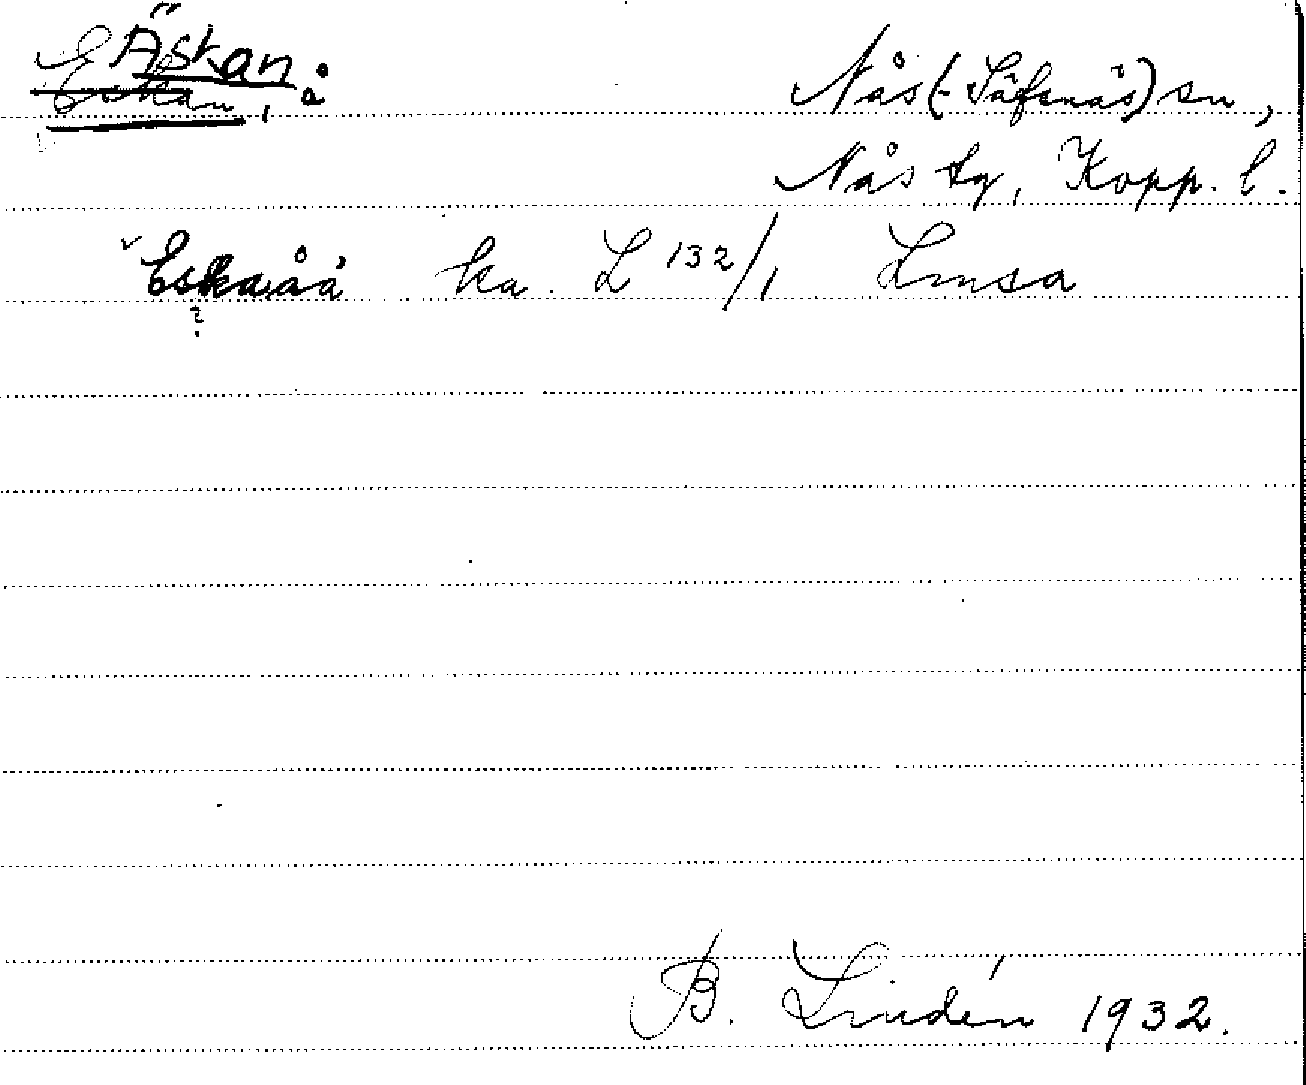 Äskan å
Eskan,
Nås (-Säfsnäs) sn,
Nås tg, Kopp. l.
Eskaåå ka. L 132/1 Lmsa
?
B. Lindén 1932.